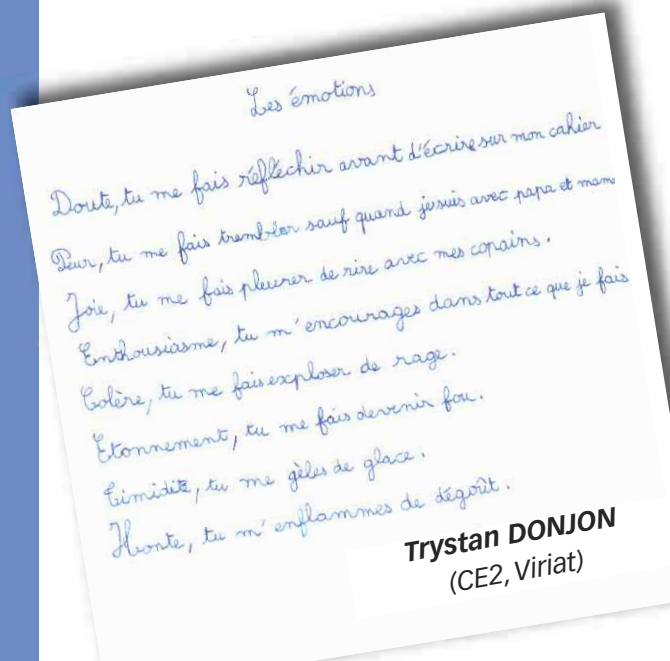 Les émotions
Doute, tu me fais réfléchir avant d'écrire sur mon cahier
Peur, tu me fais trembler sauf quand je suis avec papa et mam
Joie, tu me fais pleurer de rire avec mes copains.
Enthousiasme, tu m'encourages dans tout ce que je fais
Colère, tu me fais exploser de rage.
Etonnement, tu me fais devenir fou.
Timidité, tu me gèles de glace.
Honte, tu m'enflammes de dégoût.
Trystan DONJON
(CE2, Viriat)